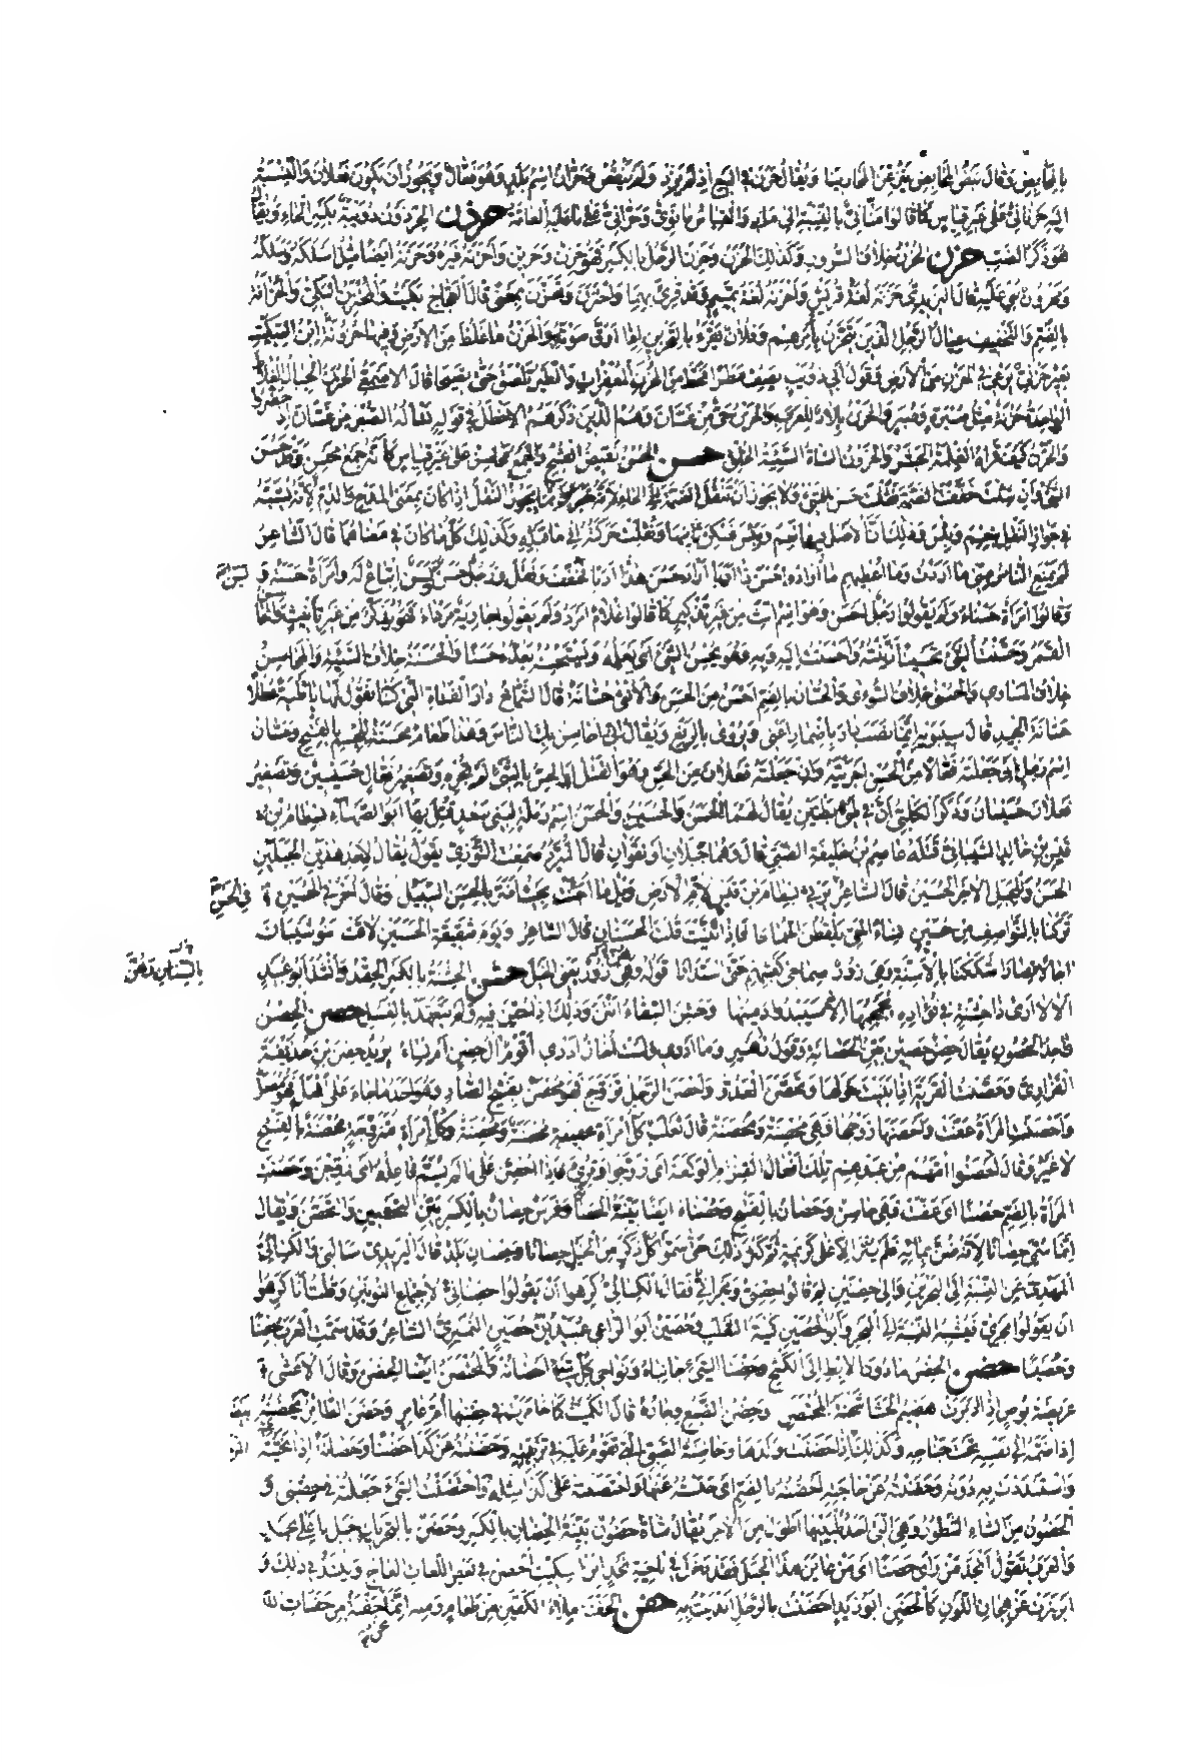 بالحابض وقال يبض الحابض عن المحارينا ويقال حرن في البيع اذا لم يزد ولم ينقص وحران اسم بلد وهو فعال ويجوز ان يكون فعلان والنسبة
اليه حرناني على غير قياس كما قالوا مناني بالنسبة الى ماني والقياس مانوي وحراني على ما عليه العامة حرذن الحرذون دويبة بكسر الحاء ويقال
هو ذكر الضب حزن الحزن خلاف السرور وكذلك الحزن وحزن الرجل بالكسر فهو حزن وحزين واحزنه غيره وحزنه ايضا مثل اسلكه وسلكه
ومحزون بني عليه قال اليزيدي حزنه لغة قريش واحزنه لغة تميم وقد قرئ بهما واحتزن وتحزن بمعنى قال العجاج بكيت والمحتزن البكي والحزانة
بالضم والتخفيف عيال الرجل الذين يتحزن بأمرهم وفلان يقرء بالتحزين اذا ارق صوته به والحزن ما غلظ من الارض وفيها حزونة ابن السكيت
بعير حزني يرعى في الحزن من الارض وقول ابي ذؤيب يصف مطرا فحط من الحزن المغفرات والطير تلثق حتى تصيحا قال الاصمعي الحزن الجبال الغلاظ
الواحدة حزنة مثل صبرة وصبر والحزن بلاد للعرب والحزن حي من غسان وهم الذين ذكرهم الاخطل في قوله تسأله الصبر من غسان اذ حضروا
والحزن كيف قراه الغلمة الجشر والحزون الشاة السيئة الخلق حسن الحسن نقيض القبح والجمع محاسن على غير قياس كأنه جمع محسن وقد حسن
الشئ وان شئت خففت الضمة فقلت حسن الشئ ولا يجوز ان تنقل الضمة الى الحاء لانه خبر وانما يجوز النقل اذا كان بمعنى المدح والذم لانه يشبه
في جواز النقل بنعم وبئس وذلك ان الاصل فيهما نعم وبئس فسكن ثانيهما ونقلت حركته الى ما قبله وكذلك كل ما كان في معناهما قال الشاعر
لم يمنع الناس مني ما اردت وما اعطيهم ما ارادوا حسن ذا ادبا اراد حسن هذا ادبا فخفف ونقل ورجل حسن بسن اتباع له وامرأة حسنة
وقالوا امرأة حسناء ولم يقولوا رجل احسن وهو اسم انث من غير تذكير كما قالوا غلام امرد ولم يقولوا جارية مرداء فهو يذكر من غير تأنيث
وحسنت الشئ تحسينا زينته واحسنت اليه وبه وهو يحسن الشئ اي يعمله ويستحسنه يعده حسنا والحسنة خلاف السيئة والمحاسن
خلاف المساوي والحسنى خلاف السوءى والحسان بالضم احسن من الحسن والانثى حسانة قال الشماخ دار الفتاة التي كنا نقول لها يا ظبية عطلا
حسانة الجيد قال سيبويه انما نصب دار باضمار اعني ويروى بالرفع ويقال اني احاسن بك الناس وهذا طعام محسنة للجسم بالفتح وحسان
اسم رجل ان جعلته فعالا من الحسن اجريته وان جعلته فعلان من الحس وهو القتل او الحس بالشئ لم تجره وتصغير فعال حسيسين وتصغير
فعلان حسيسان وذكر الكلبي ان في طئ بطنين يقال لهما الحسن والحسين والحسن اسم رملة لبني سعد قتل بها ابو الصهباء بسطام بن
قيس بن خالد الشيباني قتله عاصم بن خليفة الضبي قال وهما جبلان او نقوان قال المبرد سمعت التوزي يقول يقال لاحد هذين الجبلين
الحسن وللجبل الاخر الحسين قال الشاعر يرثي بسطام بن قيس لأم الارض ويل ما اجنت بحيث اضر بالحسن السبيل وقال اخر في الحسين
في الحسن
تركنا بالنواصف من حسين نساء الحي يلقطن الجمانا فاذا ثنيت قلت الحسنان قال الشاعر ويوم شقيقة الحسنين لاقت بنو شيبان
اجالا قصارا شككنا بالاسنة وهي زور صماخي كبشهم حتى استدارا قوله وهي زور يعني الخيل حشن الحشنة بالكسر الحقد وانشد ابو عبيد
الا لا ارى ذا حشنة في فؤاده يجمجمها الا سيبدو دفينها وحشن السقاء انتن وذلك اذا حقن فيه ولم يتعهد بالغسل حصن الحصن
واحد الحصون يقال حصن حصين بين الحصانة وقول زهير وما ادري ولست اخال ادري اقوم آل حصن ام نساء يريد حصن بن حذيفة
الفزاري وحصنت القرية اذا بنيت حولها وتحصن العدو واحصن الرجل تزوج فهو محصن بفتح الصاد وهو احد ما جاء على افعل فهو مفعل
واحصنت المرأة عفت واحصنها زوجها فهي محصنة ومحصنة قال ثعلب كل امرأة عفيفة محصنة ومحصنة وكل امرأة متزوجة محصنة بالفتح
لا غير وقال احصنوا امهم من عبدهم تلك افعال القزام الوكعة اي زوجوا وقرئ فاذا احصن على ما لم يسم فاعله اي زوجن وحصنت
المرأة بالضم حصنا اي عفت فهي حاصن وحصان بالفتح وحصناء ايضا بينة الحصانة وفرس حصان بالكسر بين التحصين والتحصن ويقال
انما سمي حصانا لانه ضن بمائه فلم ينز الا على كريمة ثم كثر ذلك حتى سموا كل ذكر من الخيل حصانا وحصنان بلد قال اليزيدي سألني والكسائي
المهدي عن النسبة الى البحرين والى حصنين لم قالوا حصني وبحراني فقال الكسائي كرهوا ان يقولوا حصناني لاجتماع النونين وقلت انا كرهوا
ان يقولوا بحري فتشبه النسبة الى البحر وابو الحصين كنية الثعلب وحصين ابو الراعي عبيد بن حصين النميري الشاعر وقد سمت العرب حصنا
وحصينا حضن الحضن ما دون الابط الى الكشح وحضنا الشئ جانباه ونواحي كل شئ احضانه والمحتضن ايضا الحضن وقال الاعشى
عريضة بوص اذا ادبرت هضيم الحشا شختة المحتضن وحضن الضبع وجاره قال الكميت كما خامرت في حضنها ام عامر وحضن الطائر بيضه يحضنه
اذا ضمه الى نفسه تحت جناحه وكذلك اذا حضنت ولدها وحاضنة الصبي التي تقوم عليه في تربيته وحضنته عن كذا حضنا وحضانة اذا نحيته
واستبددت به دونه وحضنته عن حاجته احضنه بالضم اي حبسته عنها واحتضنته عن كذا مثله واحتضنت الشئ جعلته في حضني و
الحضون من الشاء الشطور وهي التي احد طبييها اطول من الاخر يقال شاة حضون بينة الحضان بالكسر وحضن بالتحريك جبل باعلى نجد
والعرب تقول انجد من رأى حضنا اي من عاين هذا الجبل فقد دخل في ناحية نجد ابن السكيت الحضن في بعض اللغات العاج وينشد في ذلك و
ابرزت عن هجان اللون كالحضن ابو زيد احضنت بالرجل ازريت به حفن الحفنة ملء الكفين من طعام ومنه انما نحن حفنة من حفنات الله